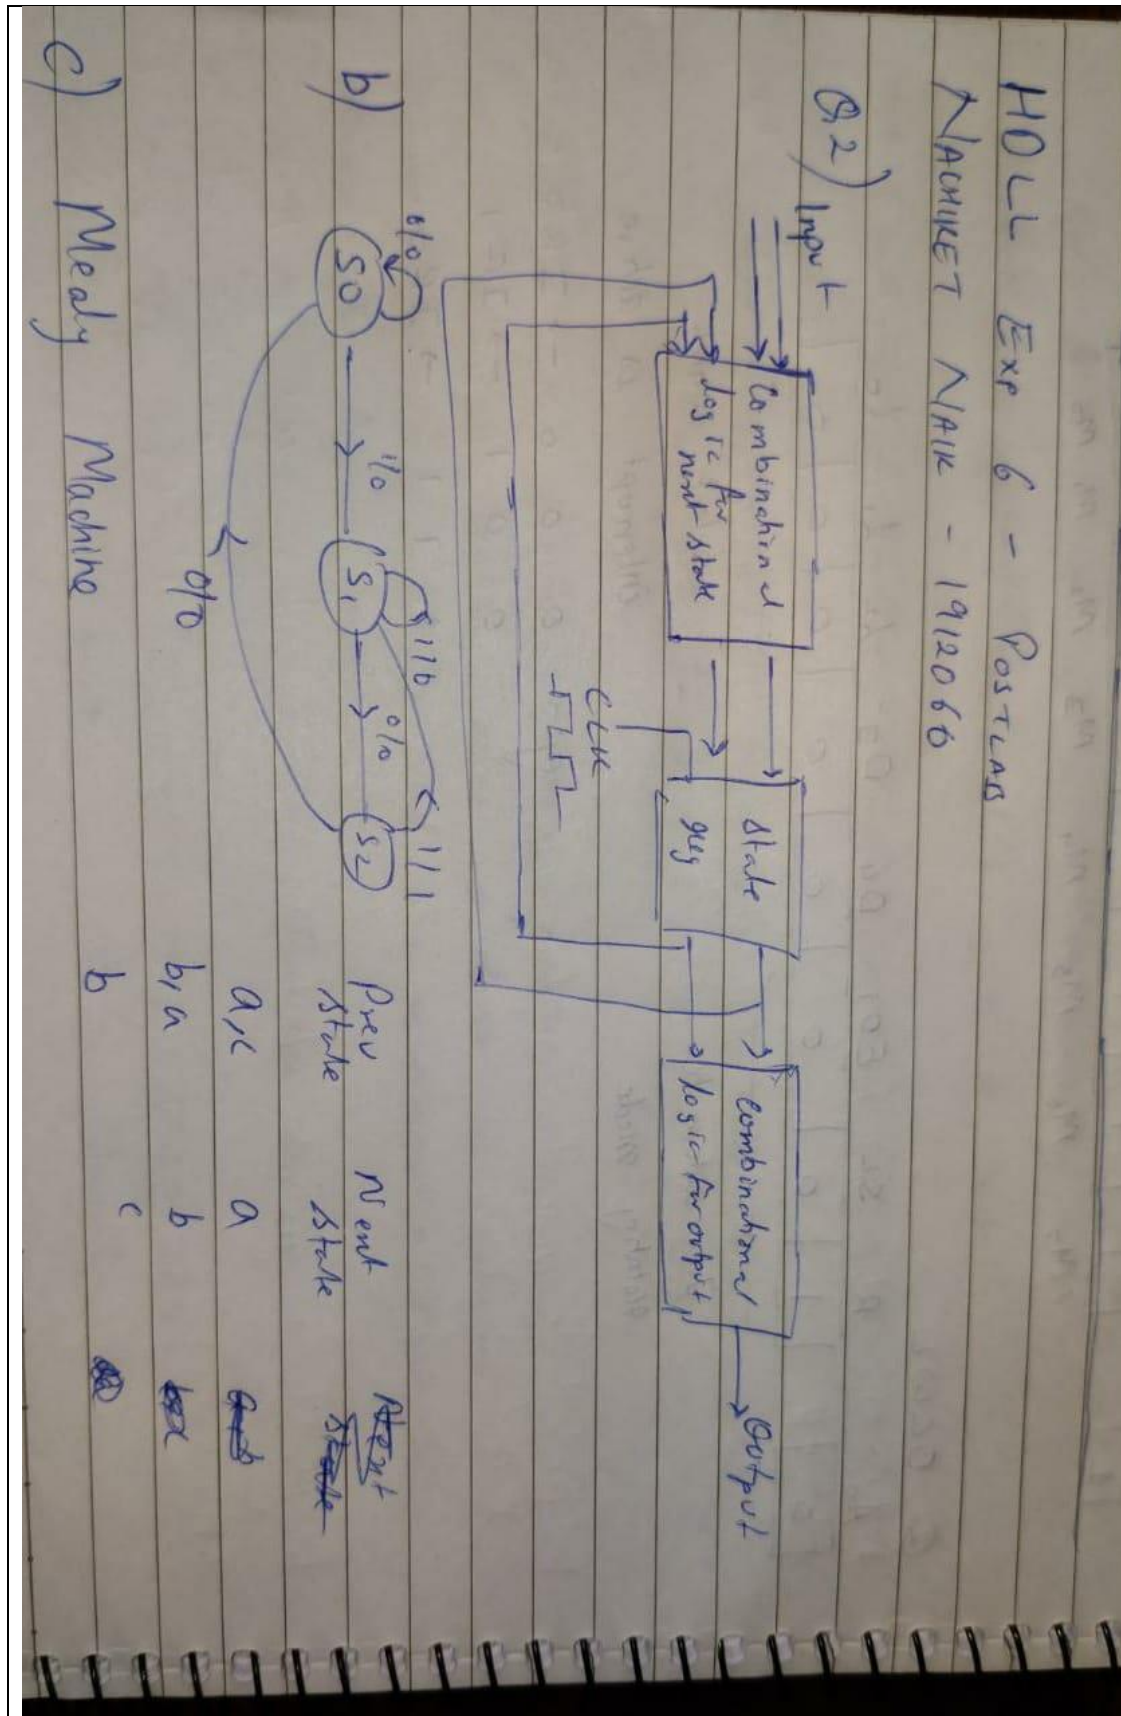 HDLL Exp 6 - POSTLAB
NACHIKET NAIK - 1912060
Q.2)
Input
Combinational
logic for
next state
state
reg
combinational
logic for output
Output
CLK
b)
0/0
S0
1/0
S1
1/0
0/0
S2
1/1
0/0
Prev
state
Next
state
a,c
a
b,a
b
b
c
c) Mealy Machine